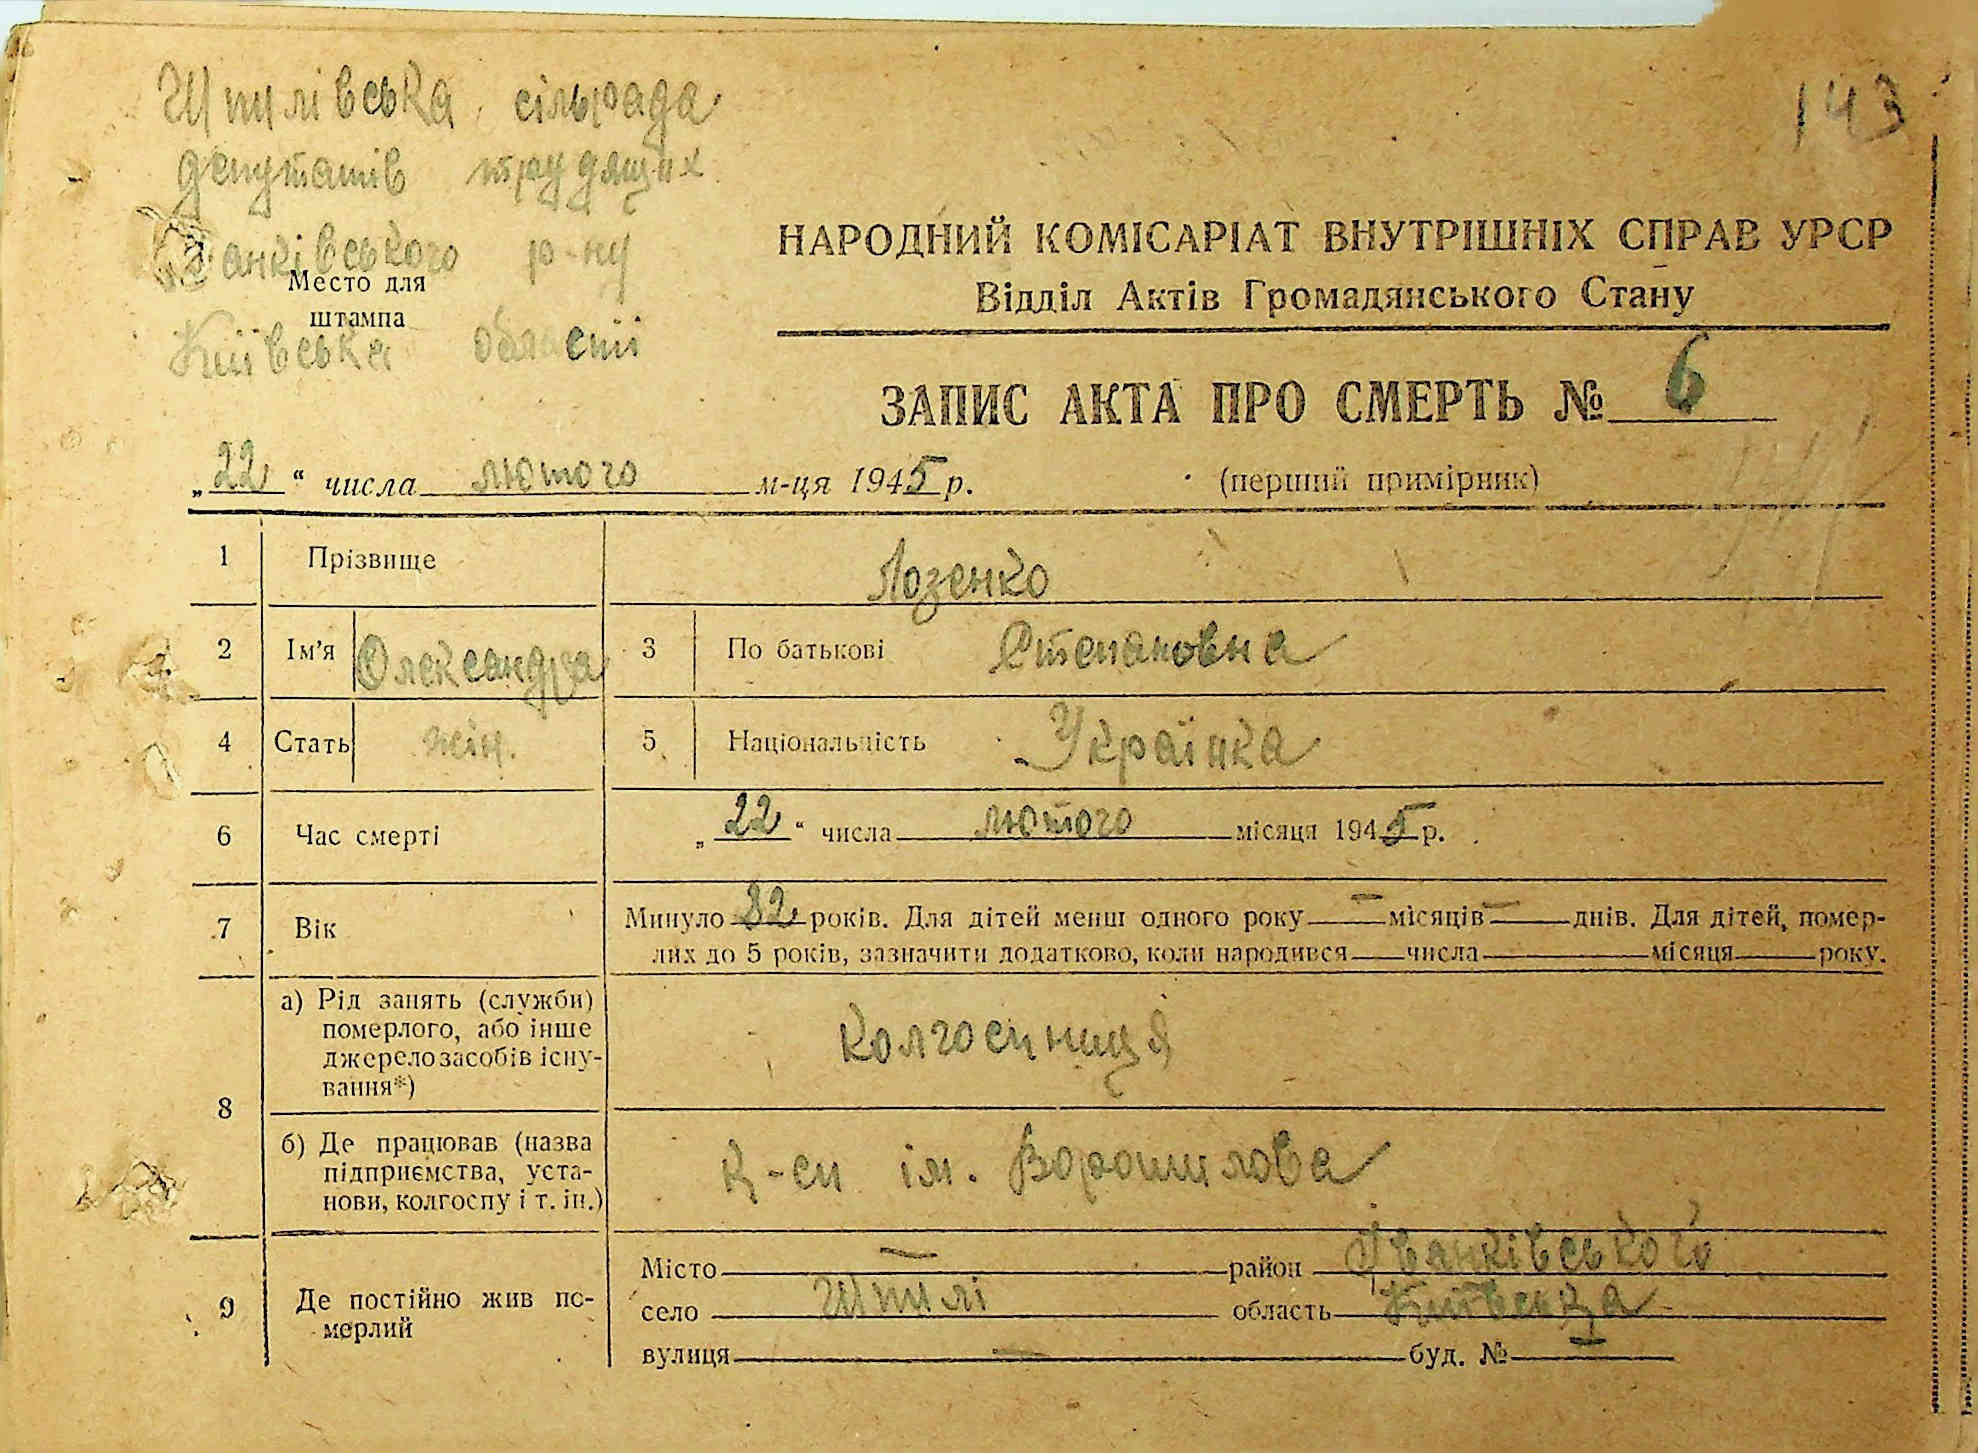 Шпилівська сільрада
депутатів трудящих
Іванківського р-ну
Место для
штампа
Київська області
143
НАРОДНИЙ КОМІСАРІАТ ВНУТРІШНІХ СПРАВ УРСР
Відділ Актів Громадянського Стану
ЗАПИС АКТА ПРО СМЕРТЬ № 6
„22“ числа лютого м-ця 1945 р. (перший примірник)
1 Прізвище Лозенко
2 Ім'я Олександра 3 По батькові Степановна
4 Стать жін. 5 Національність Українка
6 Час смерті „22“ числа лютого місяця 1945 р.
7 Вік Минуло 82 років. Для дітей менш одного року — місяців — днів. Для дітей, помер-
лих до 5 років, зазначити додатково, коли народився числа місяця року.
8 а) Рід занять (служби)
померлого, або інше
джерело засобів існу-
вання*)
колгоспниця
б) Де працював (назва
підприємства, уста-
нови, колгоспу і т. ін.)
к-сп ім. Ворошилова
9 Де постійно жив по-
мерлий
Місто — район Іванківського
село Шпилі область Київська
вулиця — буд. № —